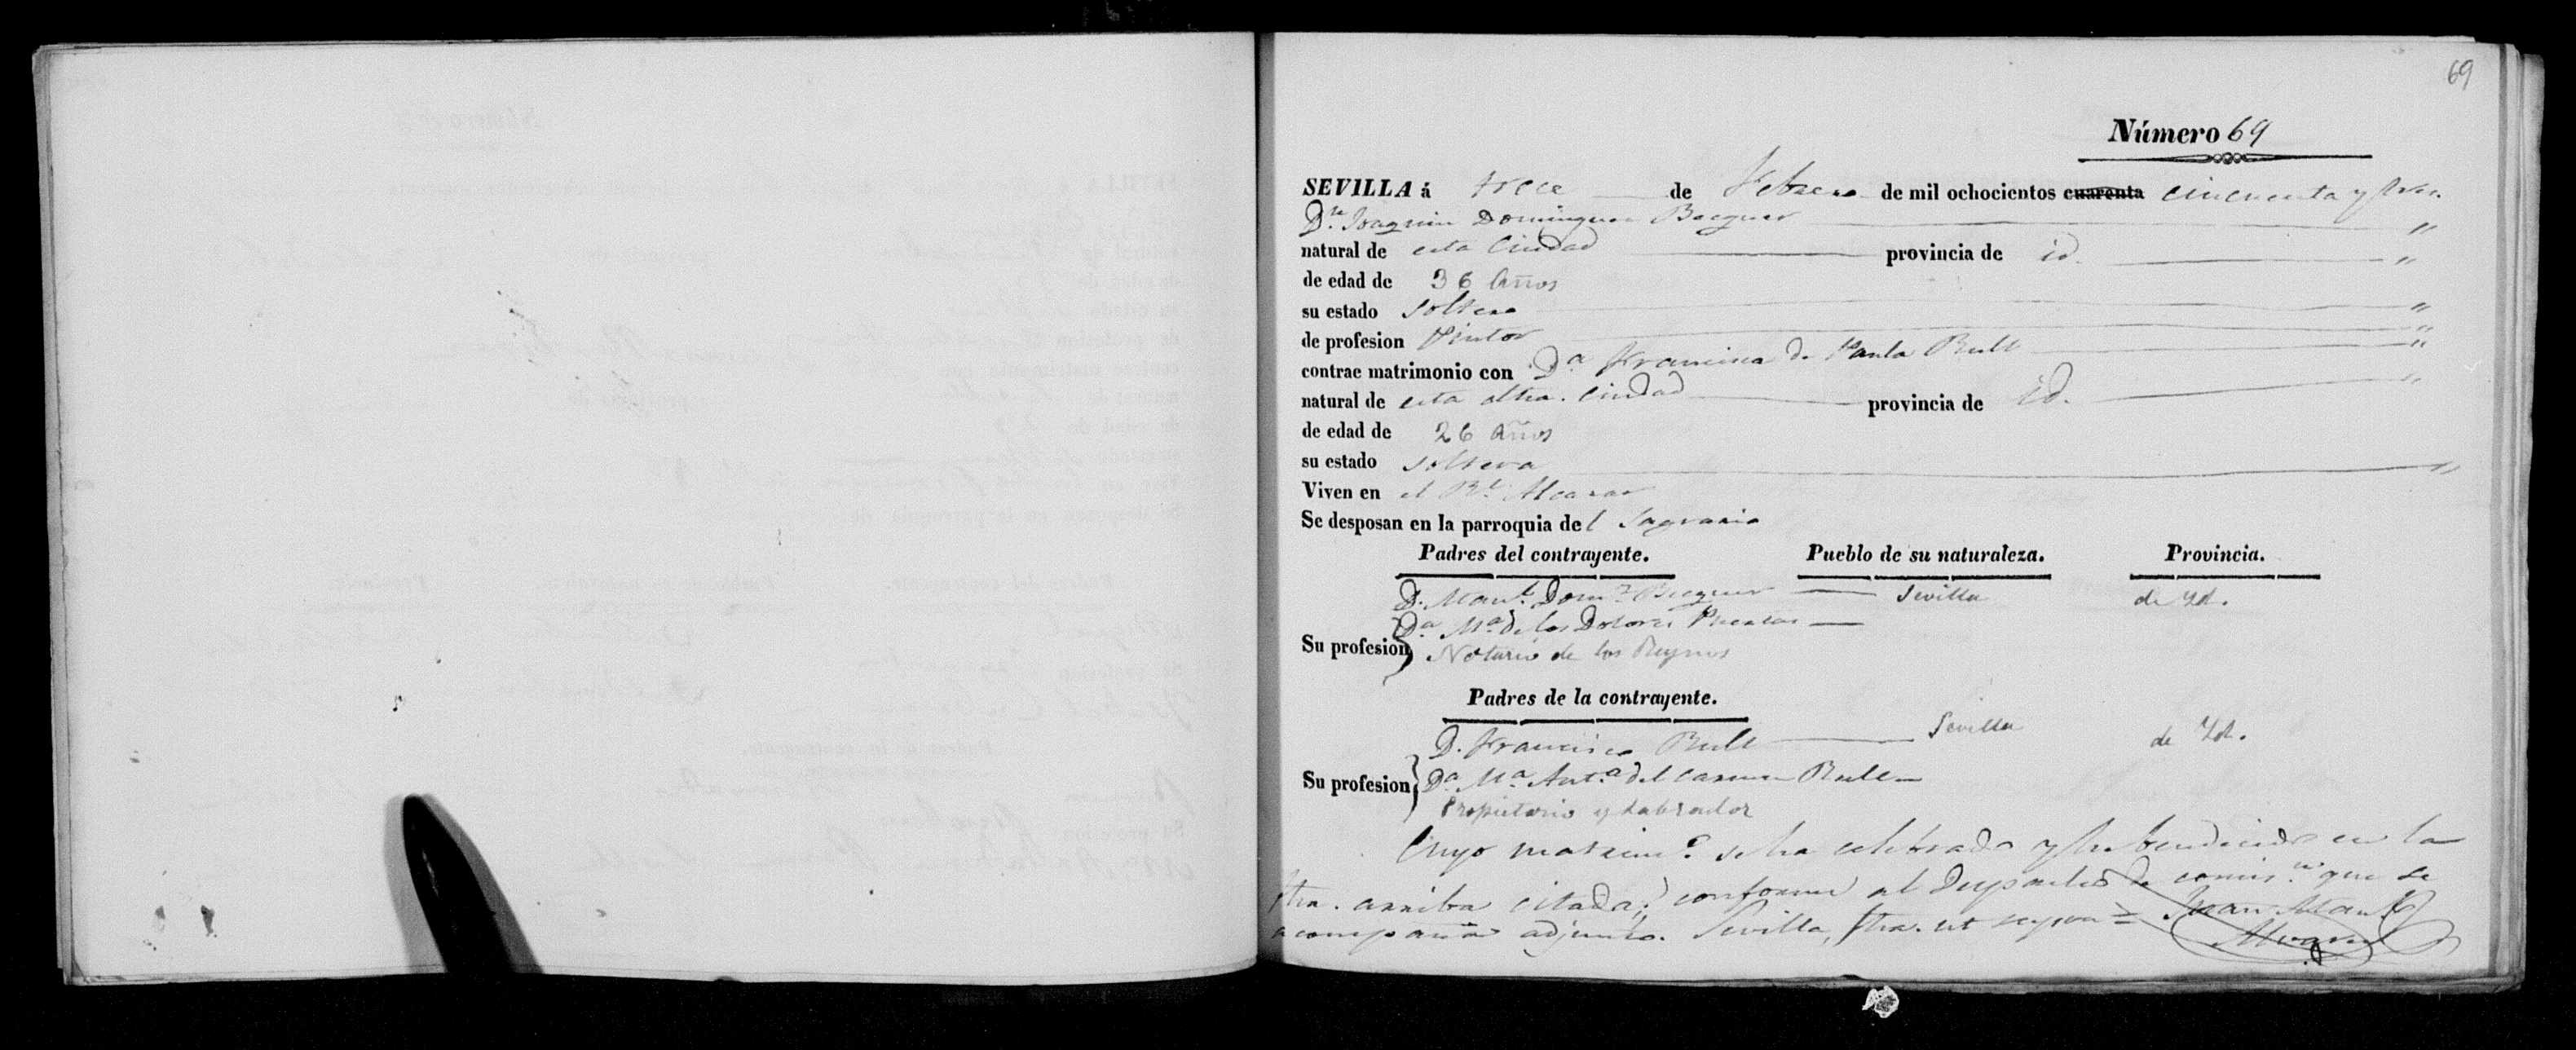 69
Número 69
SEVILLA á trece de Febrero de mil ochocientos cuarenta cincuenta y tres.
Dn. Joaquin Dominguez Becquer "
natural de esta Ciudad provincia de id. "
de edad de 36 años
su estado soltero "
de profesion Pintor "
contrae matrimonio con Da. Francisca de Paula Rull "
natural de esta dha. Ciudad provincia de id. "
de edad de 26 años
su estado soltera "
Viven en el Rl. Alcazar
Se desposan en la parroquia del Sagrario
Padres del contrayente. Pueblo de su naturaleza. Provincia.
D. Manl. Domz. Becquer Sevilla de Yd.
Da. Ma. de los Dolores
Su profesion Notario de los Reynos
Padres de la contrayente.
D. Francisco Rull Sevilla de Yd.
Su profesion Da. Ma. Anta. del Carmen Rull
Propietario y Labrador
Cuyo matrimo. se ha celebrado y he bendecido en la
fha. arriba citada; conforme al Despacho de comisn. que se
acompaña adjunto. Sevilla, fha. ut supra = Juan Manl.
Alvarez